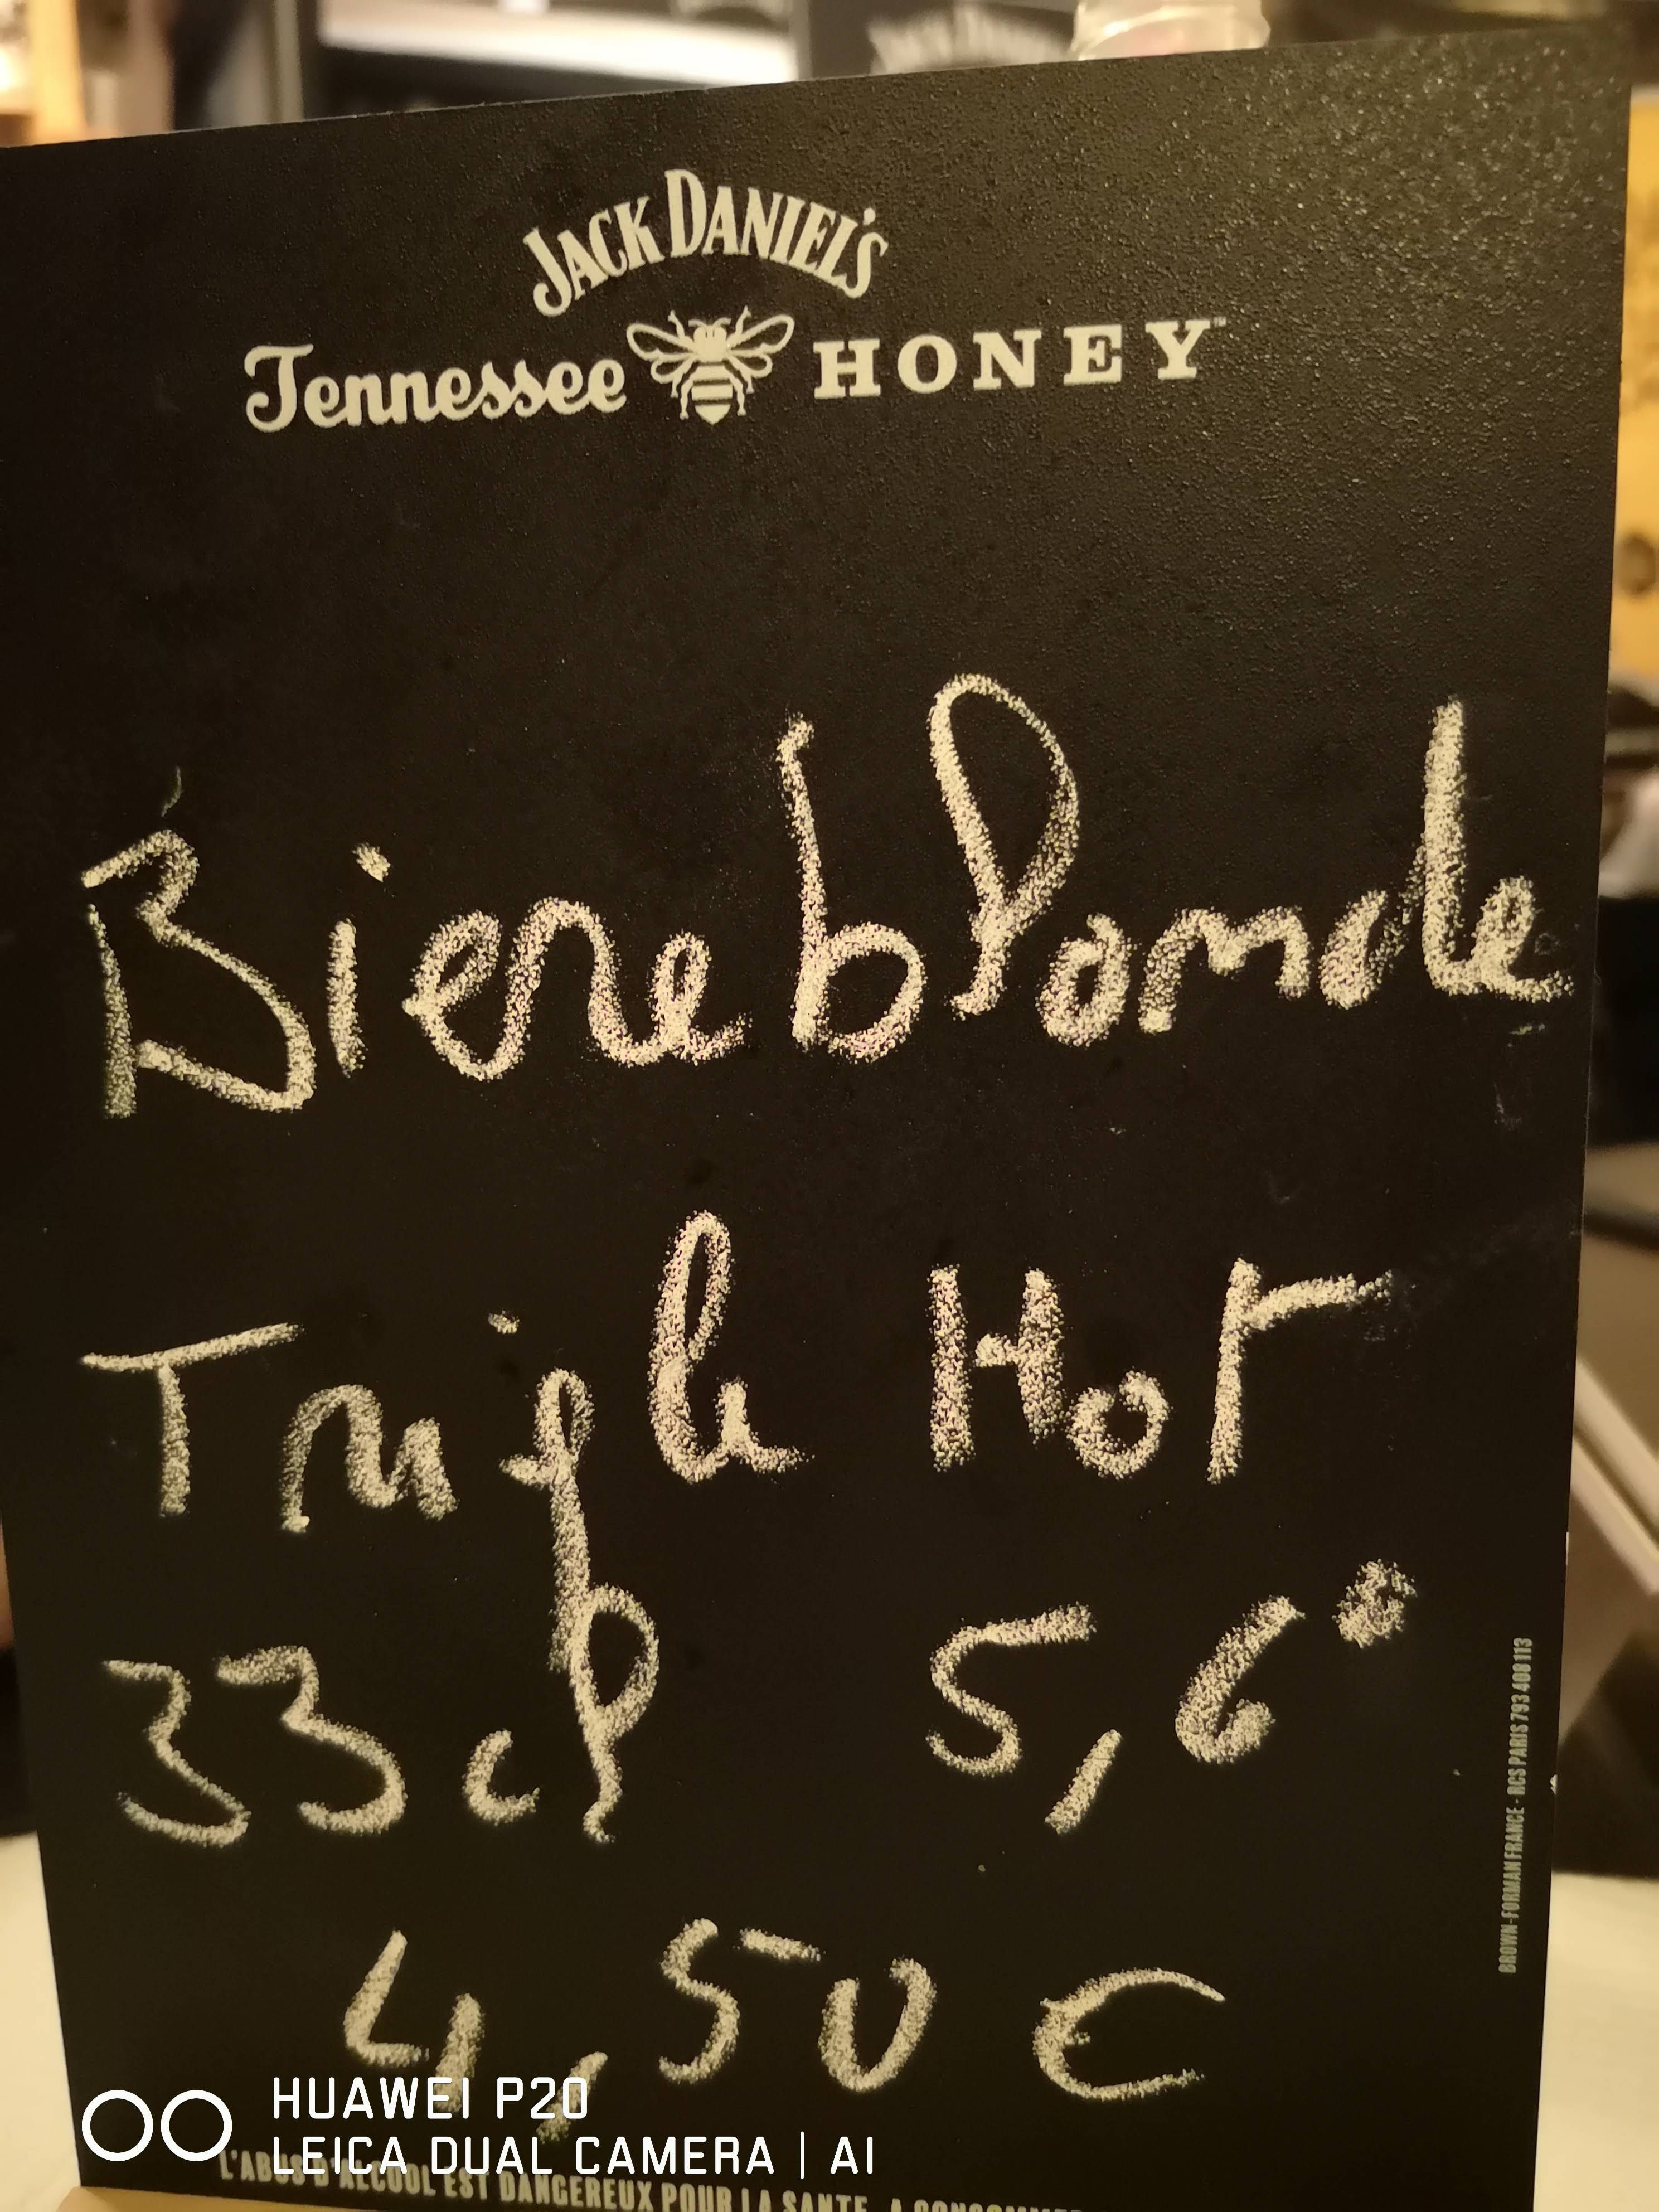 JACK DANIEL'S
Tennessee HONEY™
Biere blonde
Triple Hop
33cl 5,6°
4,50€
BROWN-FORMAN FRANCE - RCS PARIS 793 408 113
HUAWEI P20
LEICA DUAL CAMERA | AI
L'ABUS D'ALCOOL EST DANGEREUX POUR LA SANTE. A CONSOMMER